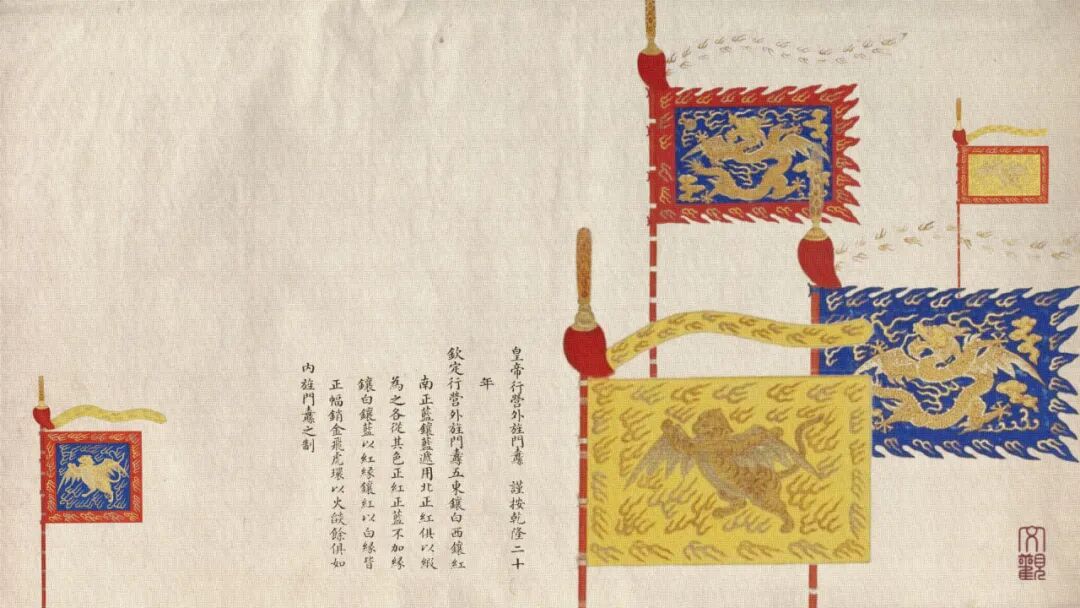 皇帝行營外旌門纛 謹按乾隆二十
年
欽定行營外旌門纛五東鑲白西鑲紅
南正藍鑲藍遞用北正紅俱以緞
為之各從其色正紅正藍不加緣
鑲白鑲藍以紅緣鑲紅以白緣皆
正幅銷金飛虎環以火燄餘俱如
內旌門纛之制
文觀